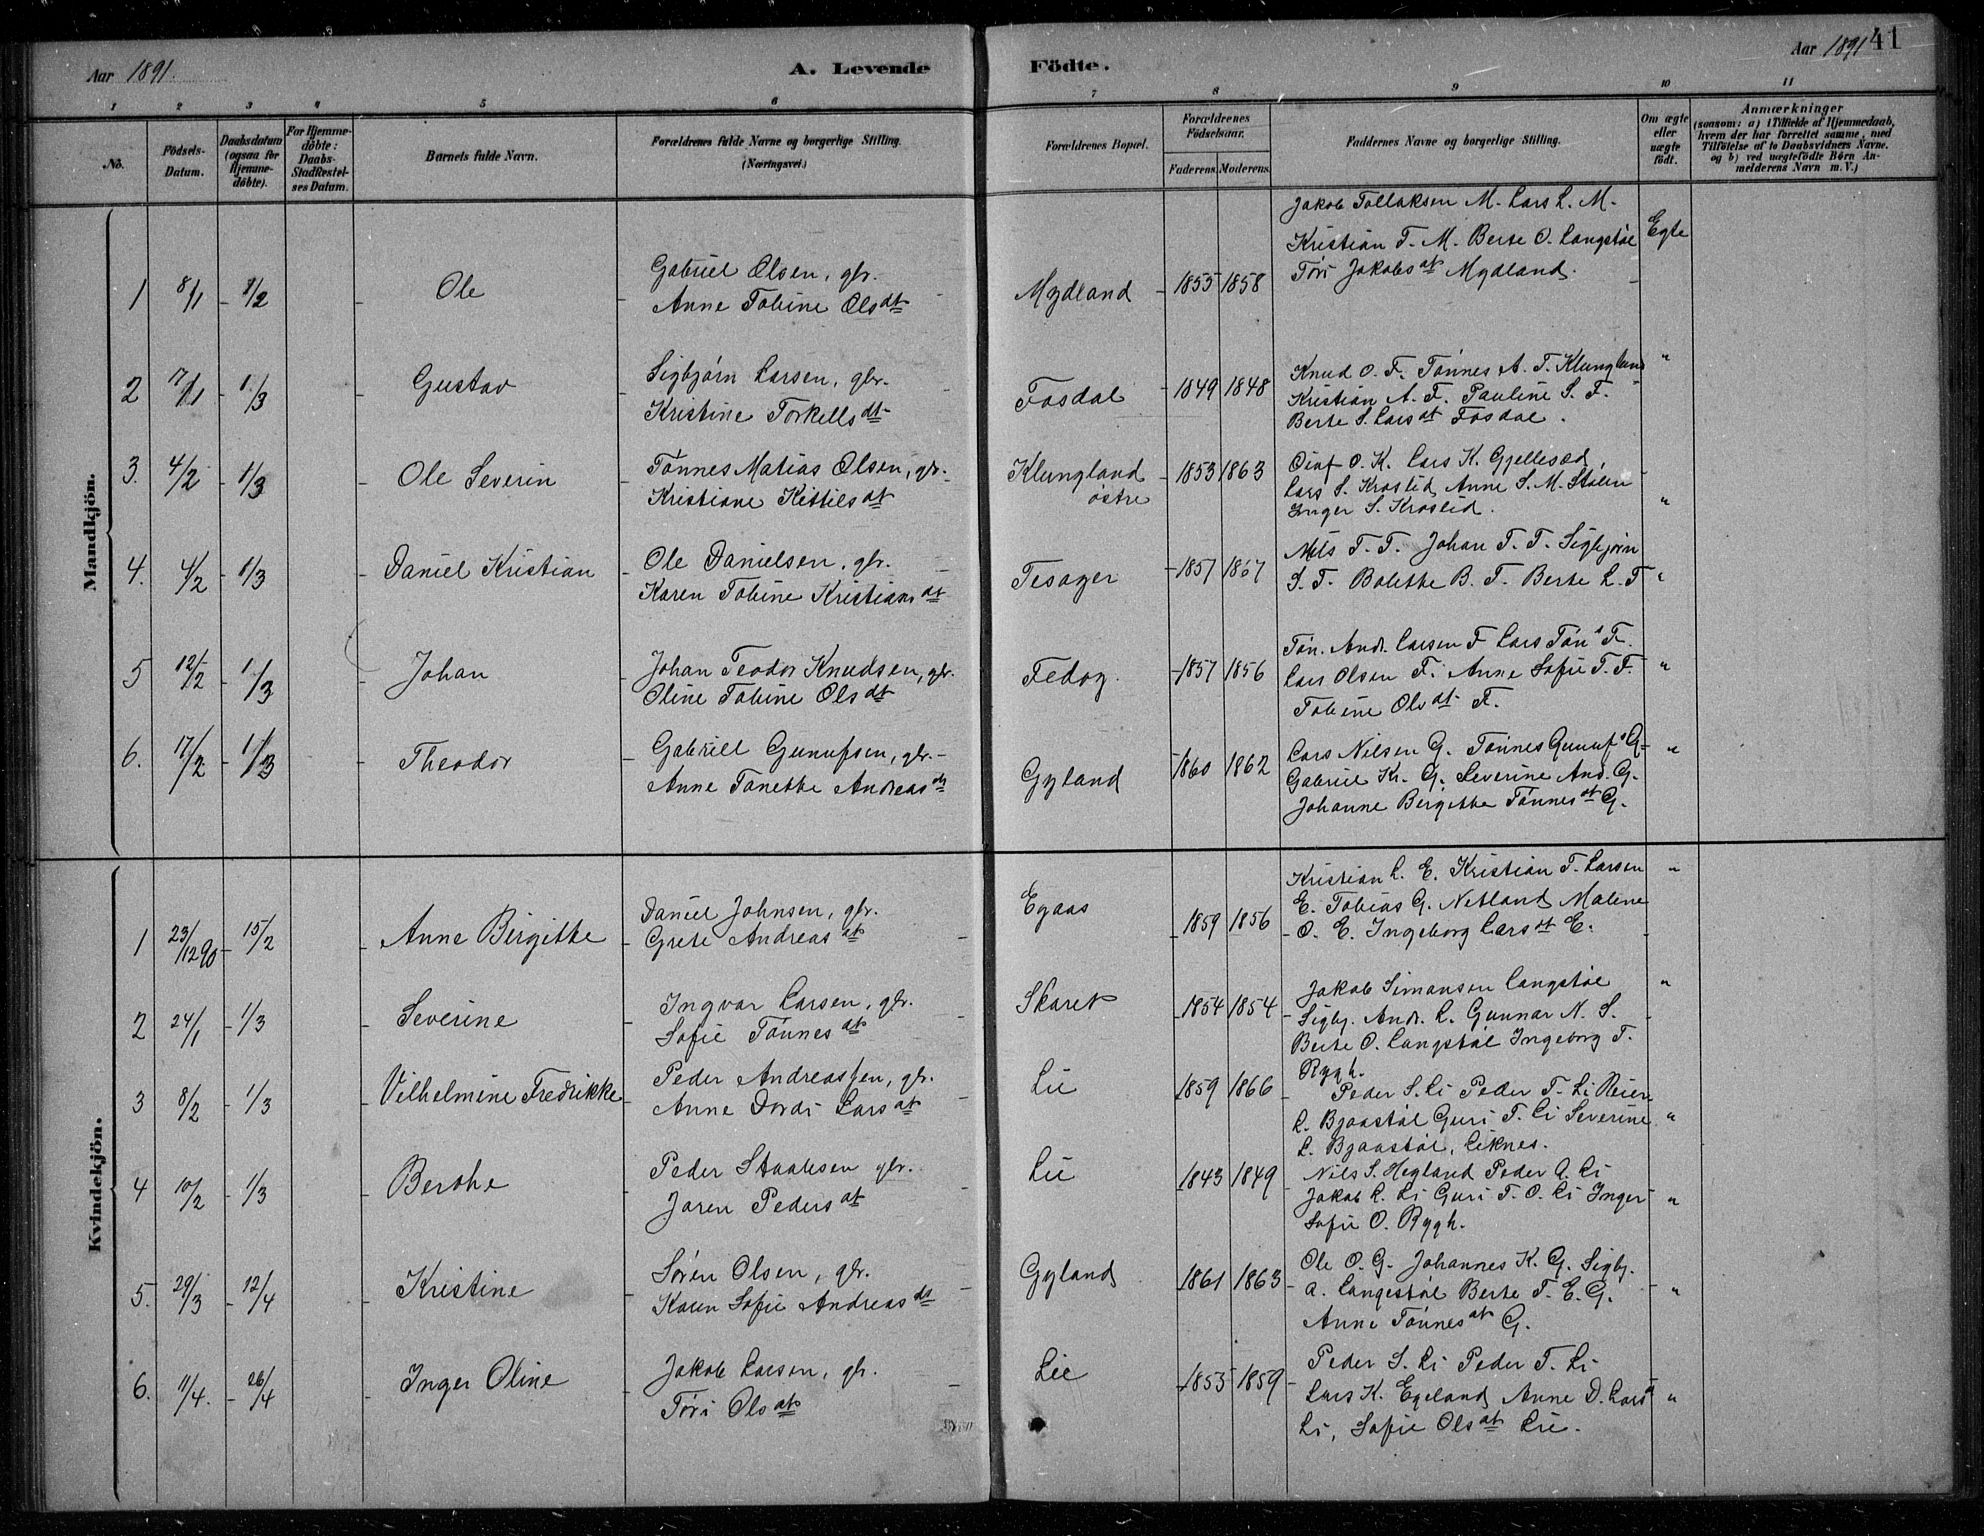 Aar 1891.
A. Levende
Födte.
Aar 1891
41
1 2 3 4 5 6 7 8 9 10 11
No.
Födsels-Datum.
Daabsdatum (ogsaa for Hjemme-döbte).
For Hjemme-döbte: Daabs-Stadfæstel-ses Datum.
Barnets fulde Navn.
Forældrenes fulde Navne og borgerlige Stilling. (Næringsvei.)
Forældrenes Bopæl.
Forældrenes Födselsaar.
Faderens. Moderens.
Faddernes Navne og borgerlige Stilling.
Om ægte eller uægte födt.
Anmærkninger
(saasom: a) i Tilfælde af Hjemmedaab, hvem der har forrettet samme, med Tilföielse af to Daabsvidners Navne. og b) ved uægtefödte Börn An-melderens Navn m. V.)
Mandkjön.
1 8/1 - 8/2 Ole
Gabriel Olsen, gbr.
Anne Tobine Olsdt
Mydland 1855 1858
Jakob Tollaksen M. Lars L. M.
Kristian T. M. Berte O. Langstøl
Tøri Jakobsdt Mydland.
Egte
2 17/1 1/3 Gustav
Sigbjørn Larsen, gbr.
Kristine Torkellsdt
Fosdal 1849 1848
Knud O. F. Tønnes A. T. Klungland
Kristian A. F. Pauline S. F.
Berte S. Larsdt Fosdal.
"
3. 4/2 1/3 Ole Severin
Tønnes Matias Olsen, gbr.
Kristiane Kittilsdt
Klungland østre 1853 1863
Oluf O. K. Lars K. Gjellesæd,
Lars S. Kroslid Anne S. M. Stølen
Inger S. Kroslid.
"
4. 4/2 1/3 Daniel Kristian
Ole Danielsen, gbr.
Karen Tobine Kristiansdt
Tesager 1857 1867
Nils T. T. Johan T. T. Sigbjørn
S. T. Bolette B. T. Berte L. T
"
5 12/2 1/3 Johan
Johan Teodor Knudsen, gbr.
Oline Tobine Olsdt
Fedog. 1857 1856
Tøn. Andr. Larsen F Lars Tøns F.
Lars Olsen F. Anne Sofie T. F.
Tobine Olsdt F.
"
6. 17/2 1/3 Theodor
Gabriell Gunufsen, gbr.
Anne Tonette Andreasdt
Gyland 1860 1862
Lars Nilsen G. Tønnes Gunufs G.
Gabriel Kr. G. Severine And. G.
Johanne Bergitte Tønnesdt G.
"
Kvindekjön.
1 23/12 90 15/2 Anne Birgitte
Daniel Johnsen, gbr.
Grete Andreasdt
Egaas 1859 1856
Kristian L. E. Kristian T. Larsen
E. Tobias G. Netland Malene
O. E. Ingeborg Larsdt E.
"
2 24/1 1/3 Severine
Ingvar Larsen, gbr.
Sofie Tønnesdt
Skaret 1854 1854
Jakob Simonsen Langstøl
Sigbj. Andr. L. Gunnar N. S.
Berte O. Langstøl Ingeborg T.
Rygh.
"
3 8/2 1/3 Vilhelmine Fredrikke
Peder Andreassen, gbr.
Anne Dordi Larsdt
Lie 1859 1866
Peder S. Li Peder T. Li Reier
L. Bjaastøl Guri T. Li Severine
L. Bjaastøl, Liknes.
"
4 10/2 1/3 Berthe
Peder Staalesen gbr.
Joren Pedersdt
Lie 1843 1849
Nils S. Hegland Peder A. Li
Jakob L. Li Guri T. O. Li Inger
Sofie O. Rygh.
"
5. 29/3 12/4 Kristine
Søren Olsen, gbr.
Karen Sofie Andreasdt
Gyland 1861 1863
Ole O. G. Johannes K. G. Sigbj.
A. Langestøl Berte T. E. G.
Anne Tønnesdt G.
"
6. 11/4. 26/4 Inger Oline
Jakob Larsen, gbr.
Tøri Olsdt
Lie 1855 1859
Peder S. Li Peder T. Li
Lars K. Egeland Anne D. Larsd
Li, Sofie Olsdt Lie.
"